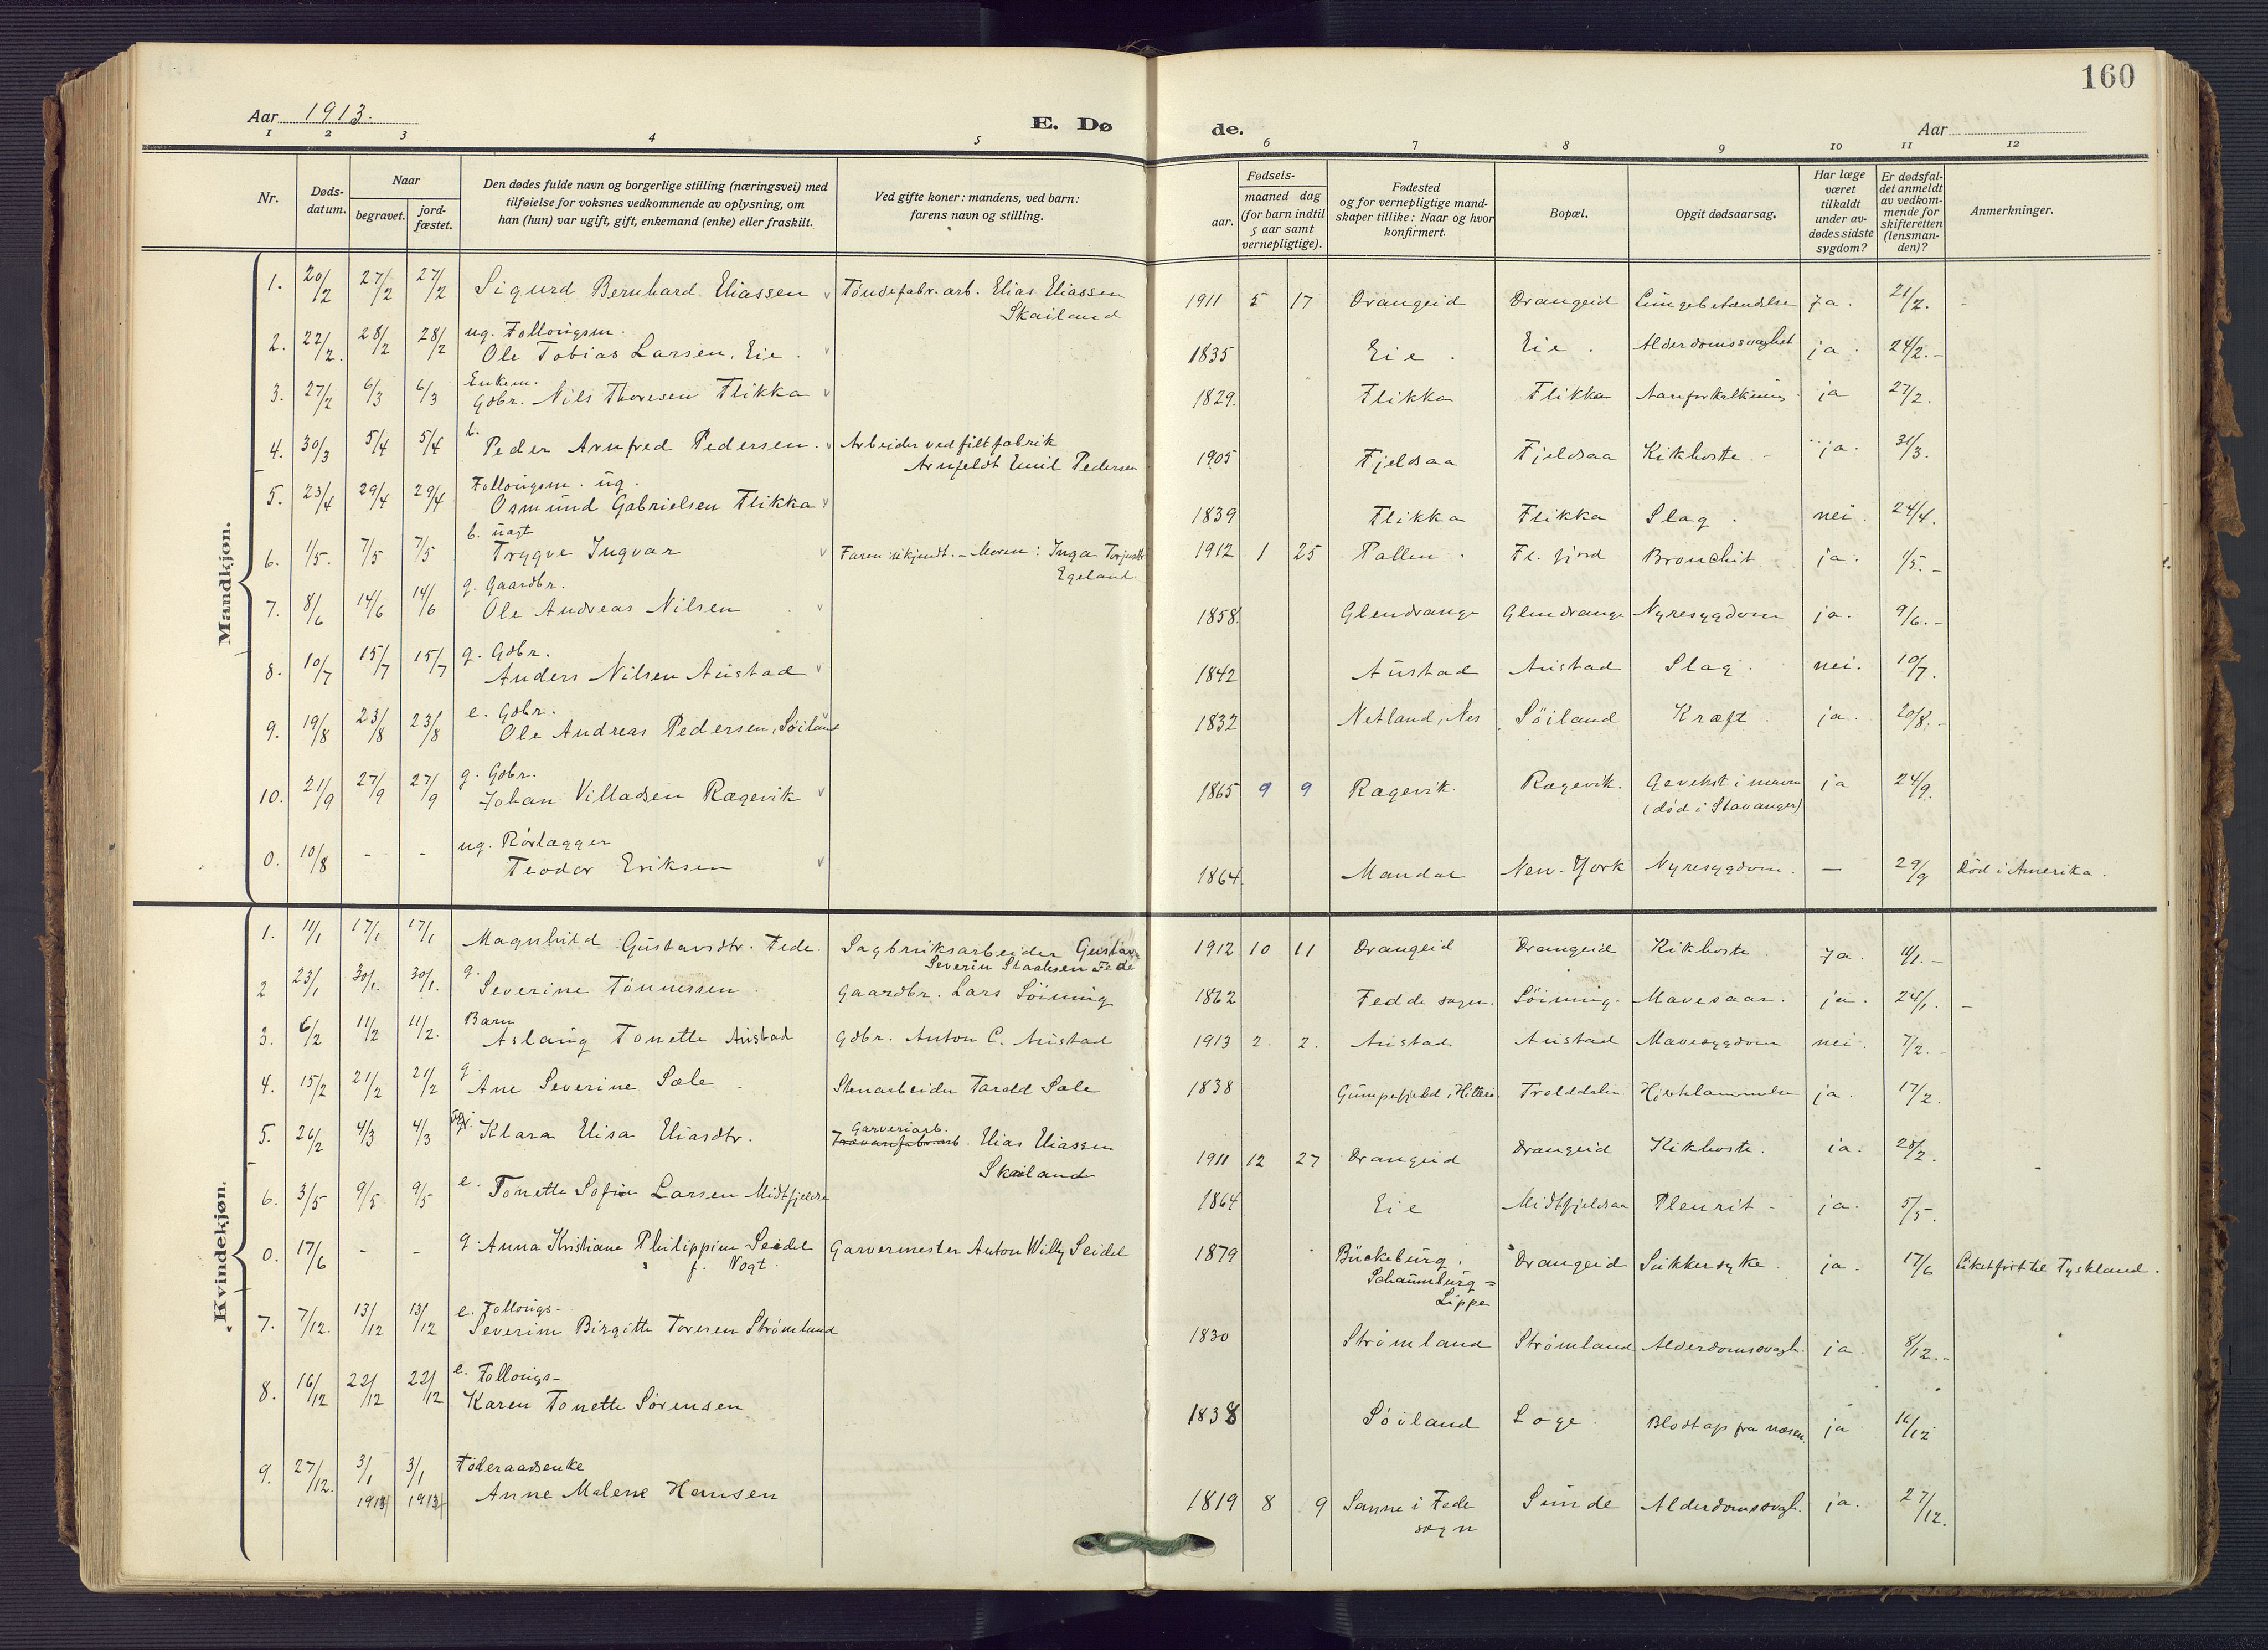 160
Aar 1913.
E. Dø de.
Aar
1 2 3 4 5 6 7 8 9 10 11 12
Nr.
Døds-
datum.
Naar
begravet.
jord-
fæstet.
Den dødes fulde navn og borgerlige stilling (næringsvei) med
tilføielse for voksnes vedkommende av oplysning, om
han (hun) var ugift, gift, enkemand (enke) eller fraskilt.
Ved gifte koner: mandens, ved barn:
farens navn og stilling.
Fødsels-
aar.
maaned dag
(for barn indtil
5 aar samt
vernepligtige).
Fødested
og for vernepligtige mand-
skaper tillike: Naar og hvor
konfirmert.
Bopæl.
Opgit dødsaarsag.
Har læge
været
tilkaldt
under av-
dødes sidste
sygdom?
Er dødsfal-
det anmeldt
av vedkom-
mende for
skifteretten
(lensman-
den)?
Anmerkninger.
Mandkjøn.
1. 20/2 27/2 27/2 Sigurd Bernhard Eliassen Tøndefabr. arb. Elias Eliassen 1911 5 17 Drangeid Drangeid Lungebetændelse Ja. 21/2.
Skailand
ug. Follougsm.
2. 22/2. 28/2 28/2 Ole Tobias Larsen, Eie. 1835 Eie. Eie. Alderdomssvaghet ja. 24/2.-
Enkem.
3. 27/2 6/3 6/3 Gdbr. Nils Thoresen Flikka 1829. Flikka Flikka Aareforkalkning ja 27/2.
b.
4. 30/3 5/4 5/4 Peder Arnfred Pedersen. Arbeider ved filtfabrik 1905 Fjeldsaa Fjeldsaa Kikhoste - ja. 31/3.
Arnfeldt Emil Pedersen
Follougsm. ug.
5. 23/4 29/4 29/4 Osmund Gabrielsen Flikka 1839 Flikka Flikka Slag. nei. 24/4.
b. uægt
6. 1/5. 7/5 7/5 Trygve Ingvar Faren ukjendt. - Moren: Inga 1912 1 25 Pallen. Fl. fjord Bronchit ja. 1/5.-
Egeland.
g. Gaardbr.
7. 8/6 14/6 14/6 Ole Andreas Nilsen 1858. Glendrange Glendrange Nyresygdom ja. 9/6.-
g. Gdbr.
8. 10/7 15/7 15/7 Anders Nilsen Austad 1842 Austad Austad Slag. nei. 10/7.
e. Gdbr.
9. 19/8 23/8 23/8 Ole Andreas Pedersen, Søiland 1832 Netland, Nes Søiland Kræft. ja. 20/8.-
g. Gdbr.
10. 21/9 27/9 27/9 Johan Villadsen Rægevik 1865 9 9 Rægevik. Rægevik. Gevekst i maven ja 24/9.
(død i Stavanger)
ug. Rørlægger
0. 10/8 - - Teodor Eriksen 1864 Mandal New-York Nyresygdom. — 29/9 Død i Amerika.
Kvindekjøn.
1. 11/1 17/1 17/1 Magnhild Gustavsdtr. Fede. Sagbruksarbeider Gustav 1912 10 11 Drangeid Drangeid Kikhoste. Ja. 11/1.-
Severin Staalesen Fede
g.
2 23/1 30/1. 30/1. Severine Tønnessen. Gaardbr. Lars Søinning 1862 Fedde sogn. Søinning. Mavesaar. ja. 24/1.-
Barn
3. 6/2 11/2 11/2. Aslaug Tonette Austad Gdbr. Anton C. Austad 1913 2. 2. Austad Austad Mavesygdom nei. 7/2.
g.
4. 15/2 21/2 21/2 Ane Severine Sæle Stenarbeider Tarald Sæle 1838 Gumpefjeld, Hitterø. Trolddalen Hjertelammelse ja. 17/2.
Garveriarb.
5. 26/2 4/3 4/3 Klara Elisa Eliasdtr. Trævarefabr. arb. Elias Eliassen 1911 12 27 Drangeid Drangeid Kikhoste. ja. 28/2.
Skailand
6. 3/5 9/5 9/5 e. Tonette Sofie Larsen Midtfjeldsa 1864 Eie Midtfjeldsaa Pleurit - ja. 5/5.
0. 17/6 - - g. Anna Kristiane Philippine Seidel Garvermester Anton Willy Seidel 1879 Bückeburg, Drangeid Sukkersyke. ja. 17/6 Liket ført til Tyskland.
f. Vogt. Schaumburg-
Lippe
e. Follougs-
7. 7/12. 13/12 13/12 Severine Birgitte Toresen Strømland 1830 Strømland Strømland Alderdomssvagh. ja. 8/12.-
e. Follougs-
8. 16/12 22/12 22/12 Karen Tonette Sørensen 1838 Søiland Loge. Blodtap fra næsen. ja 16/12
Føderaadsenke
9. 27/12. 3/1 3/1 Anne Malene Hansen 1819 8 9 Sanne i Fede Sunde Alderdomssvagh. ja. 27/12.
sogn